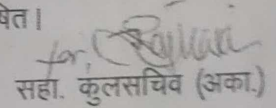 षेत।
for,
सहा. कुलसचिव (अका.)